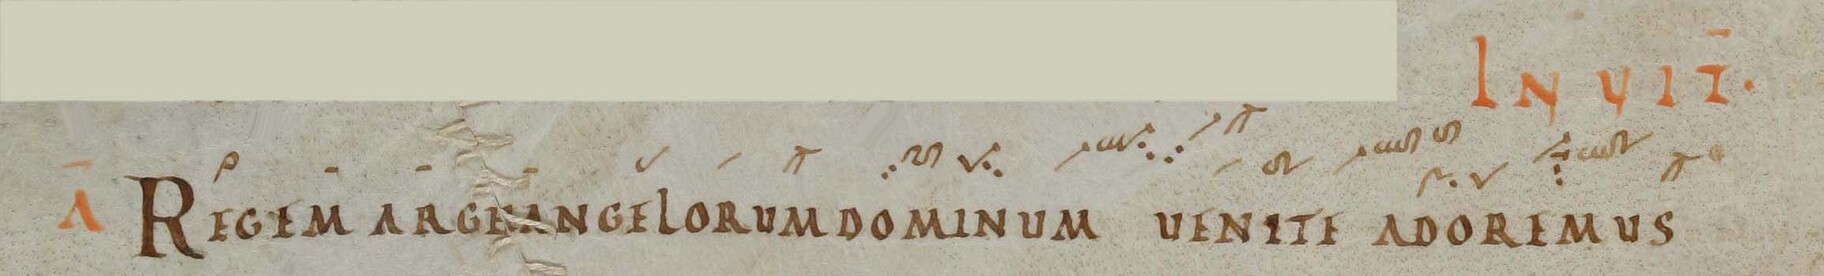 INVIT̄.
Ā REGEM ARCHANGELORUM DOMINUM UENITE ADOREMUS